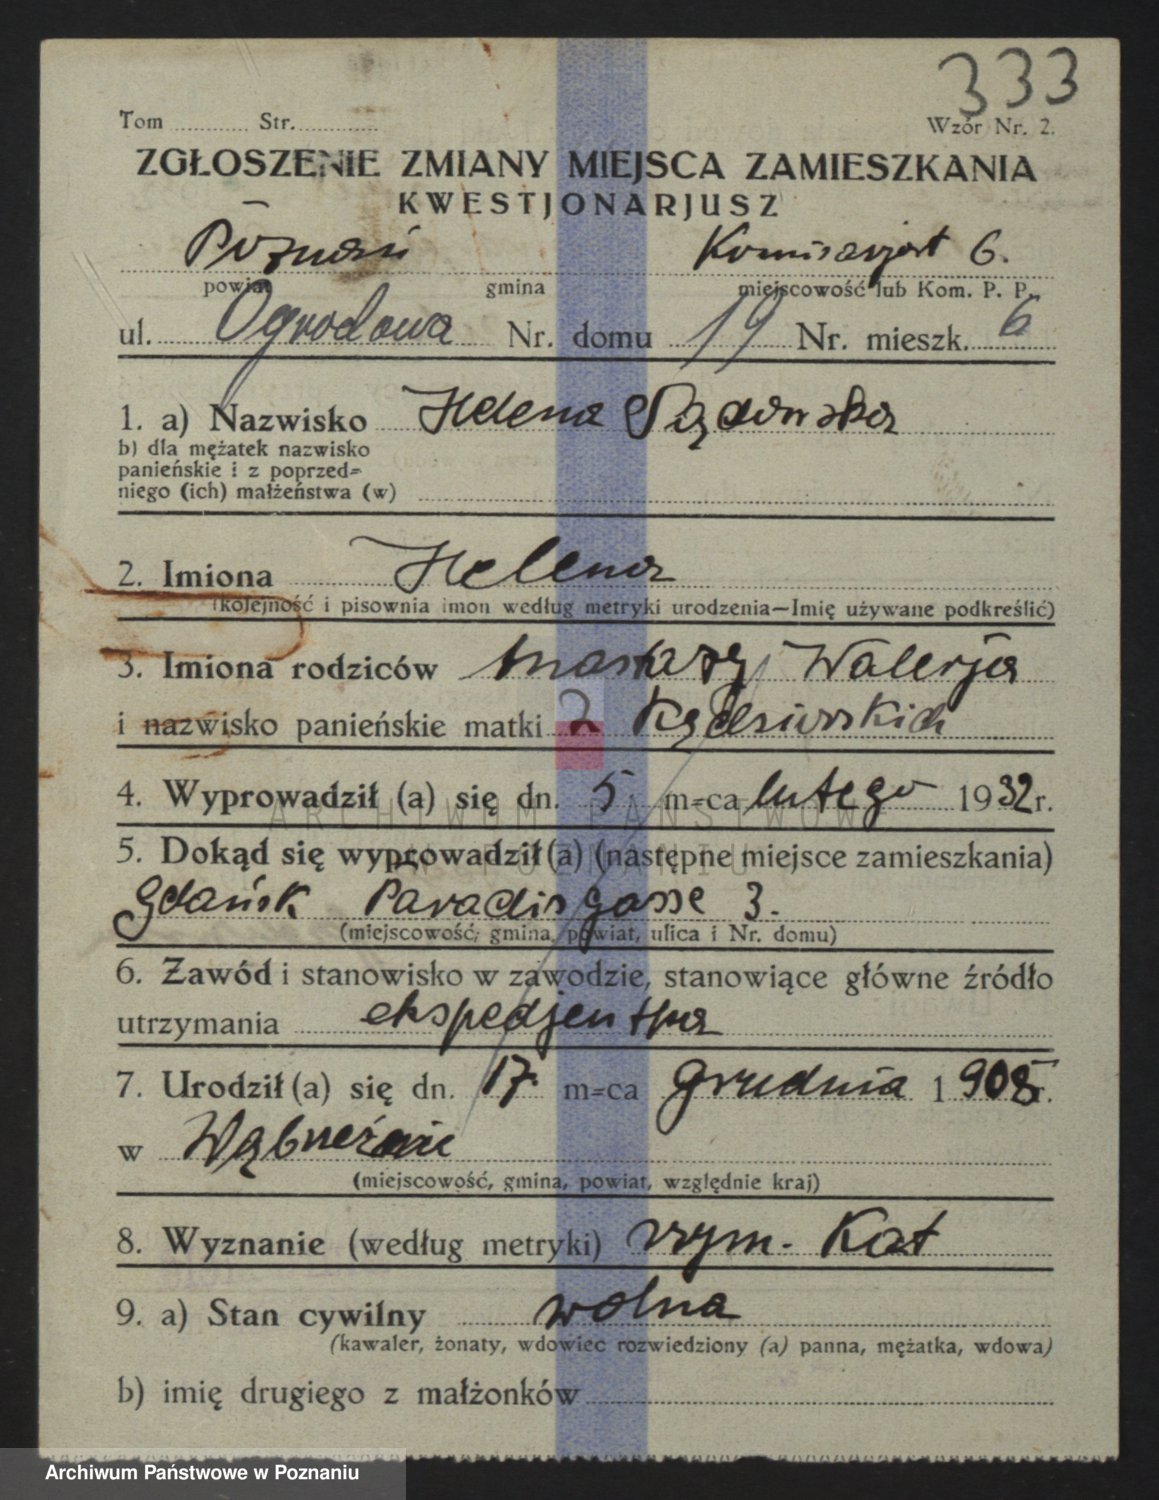 333
Tom ............ Str. ............
Wzór Nr. 2.
ZGŁOSZENIE ZMIANY MIEJSCA ZAMIESZKANIA
KWESTJONARJUSZ
Poznań Komisarjat 6.
powiat gmina miejscowość lub Kom. P. P.
ul. Ogrodowa Nr. domu 19 Nr. mieszk. 6
1. a) Nazwisko Helena Sądowska
b) dla mężatek nazwisko
panieńskie i z poprzed=
niego (ich) małżeństwa (w)
2. Imiona Helena
(kolejność i pisownia imon według metryki urodzenia—Imię używane podkreślić)
3. Imiona rodziców Anastazy Walerja
i nazwisko panieńskie matki z Kędzierskich
4. Wyprowadził (a) się dn. 5 m=ca lutego 1932 r.
ARCHIWUM PAŃSTWOWE
W POZNANIU
5. Dokąd się wyprowadził (a) (następne miejsce zamieszkania)
Gdańsk Paradisgasse 3.
(miejscowość, gmina, powiat, ulica i Nr. domu)
6. Zawód i stanowisko w zawodzie, stanowiące główne źródło
utrzymania ekspedjentka
7. Urodził (a) się dn. 17. m=ca grudnia 1908 r.
w Wąbrzeźnie
(miejscowość, gmina, powiat, względnie kraj)
8. Wyznanie (według metryki) rzym. Kat
9. a) Stan cywilny wolna
(kawaler, żonaty, wdowiec rozwiedziony (a) panna, mężatka, wdowa)
b) imię drugiego z małżonków
Archiwum Państwowe w Poznaniu